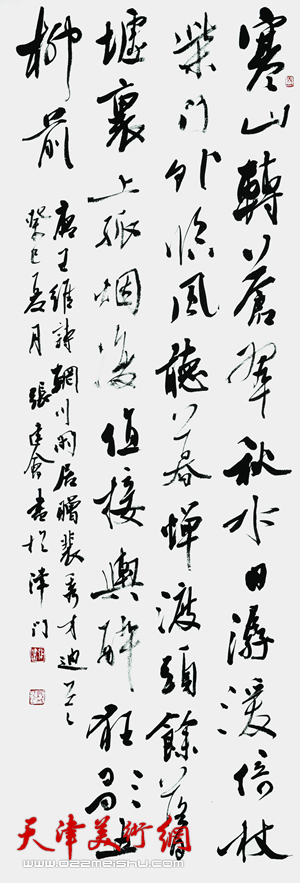 寒山轉蒼翠秋水日潺湲倚杖
柴门外臨風聽暮蝉渡頭餘落日
墟裏上孤烟復值接輿醉狂歌五
柳前
唐王維詩輞川閑居贈裴秀才迪
癸巳夏月張建會書於津门
天津美術網
www.022meishu.com